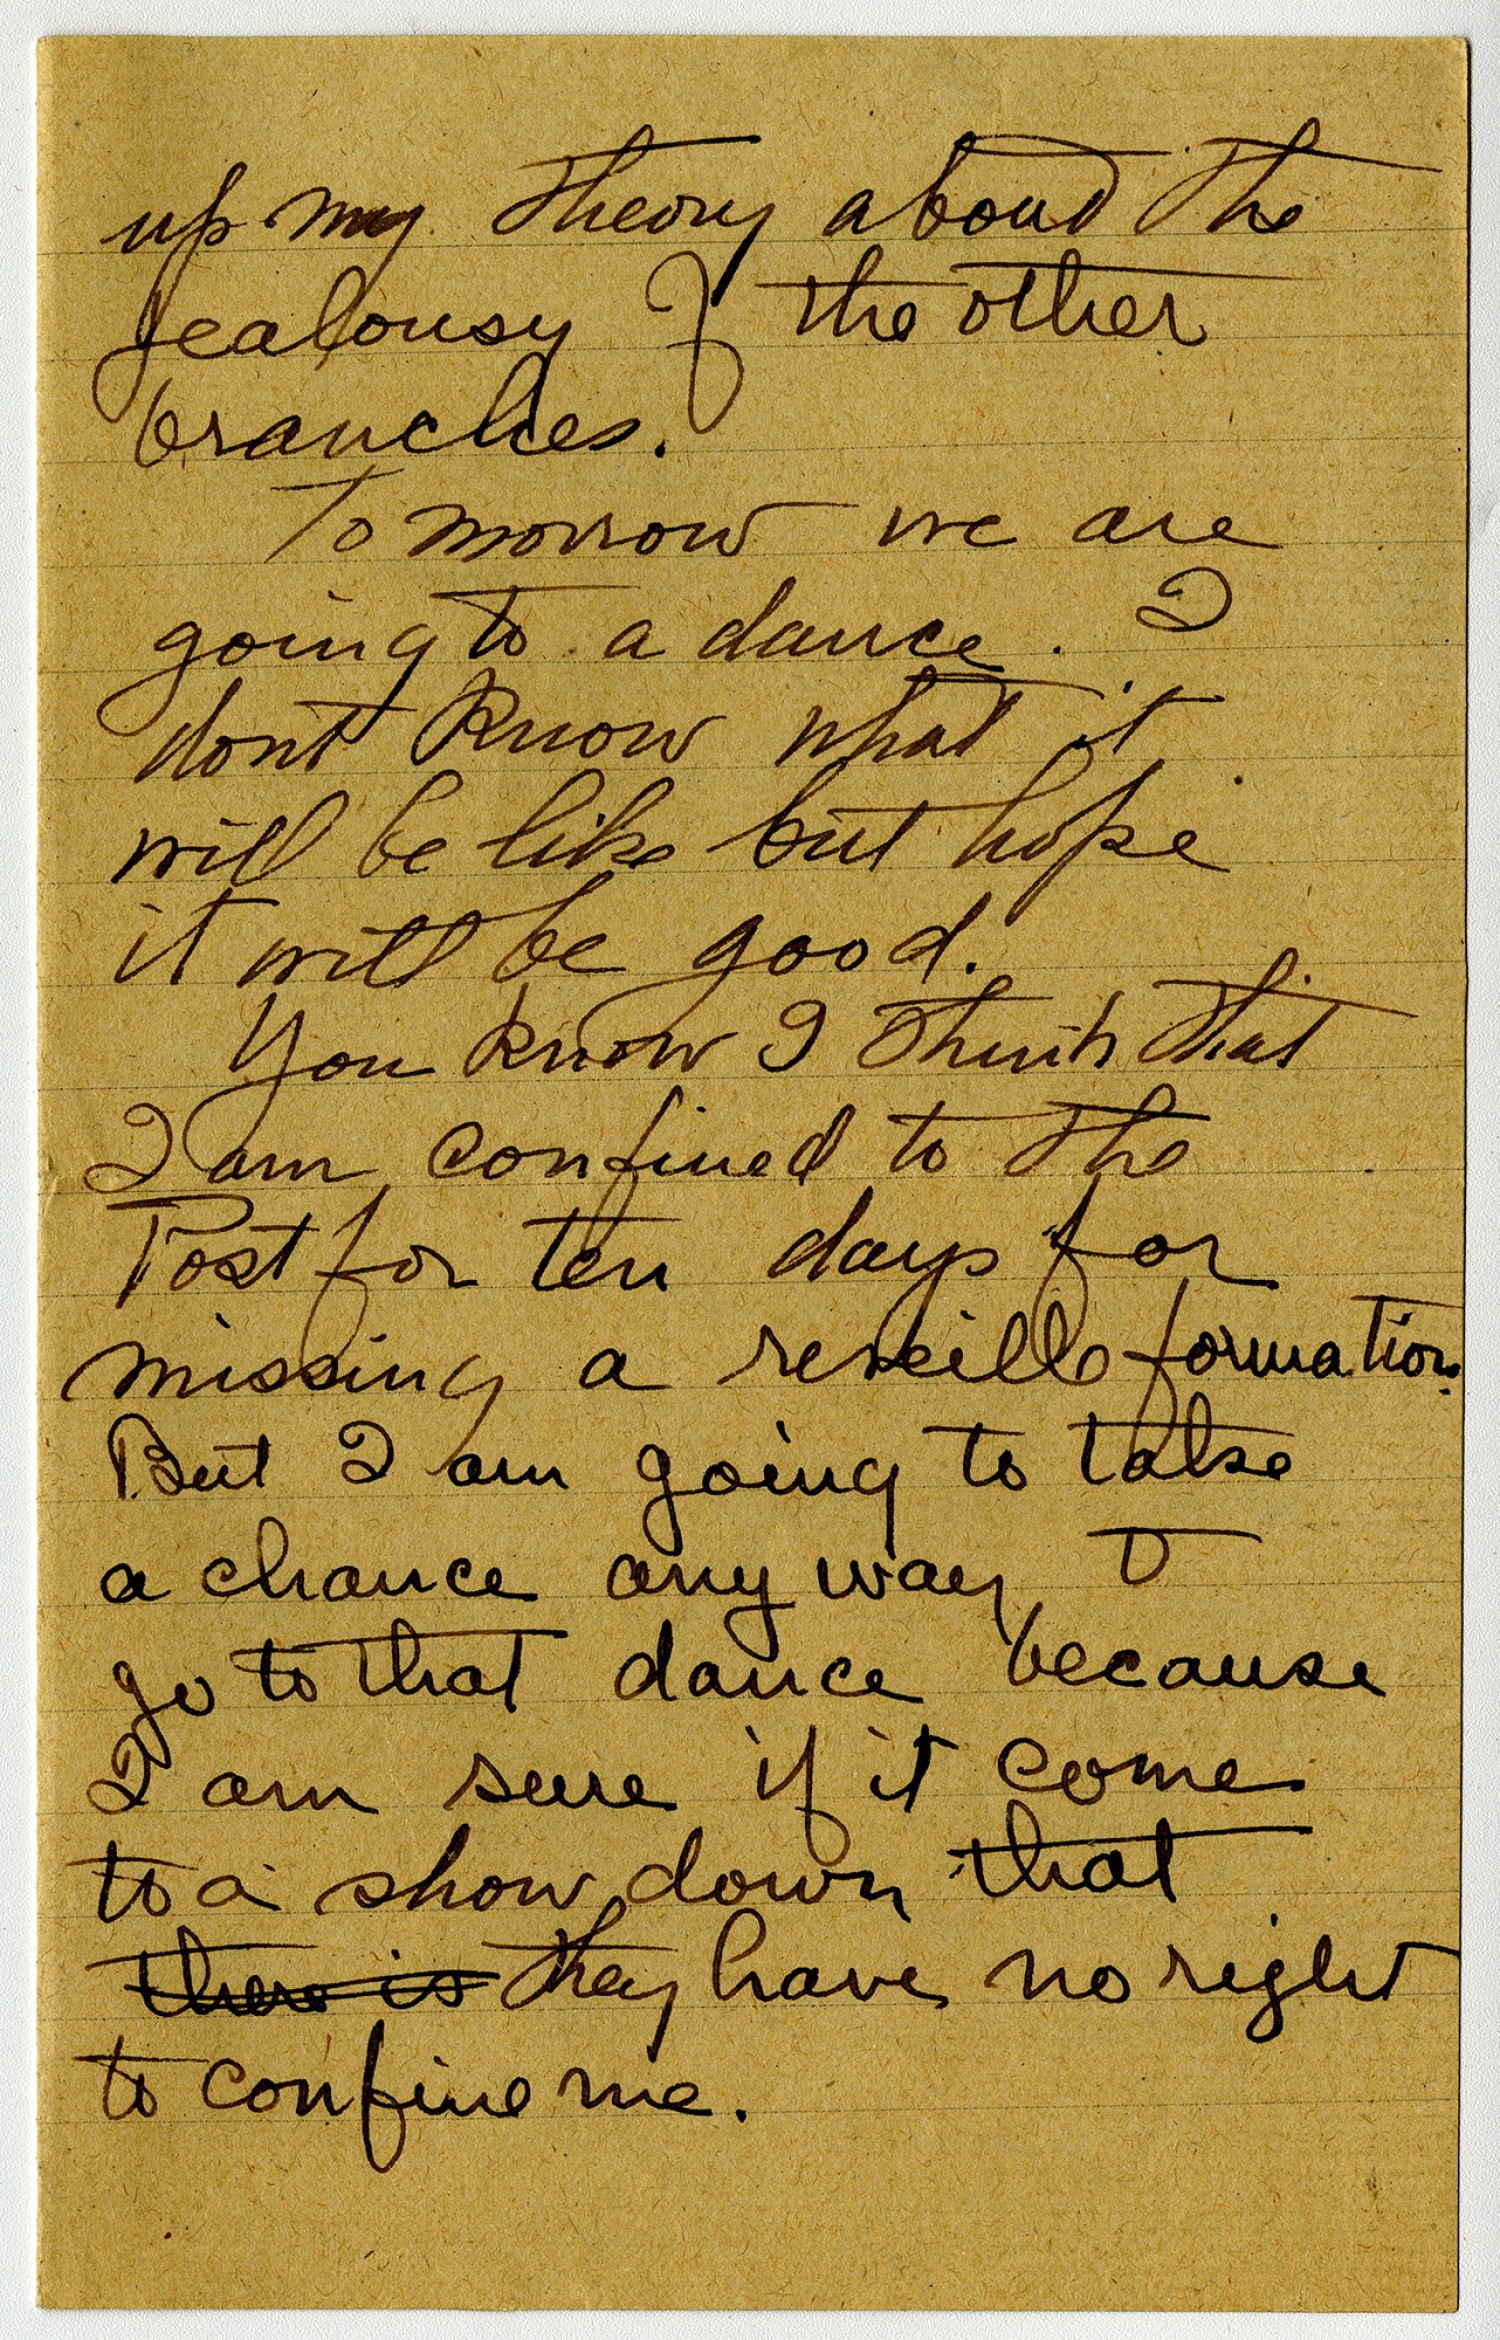 up my theory about the
jealousy of the other
branches.
Tomorrow we are
going to a dance. I
dont know what it
will be like but hope
it will be good.
You know I think that
I am confined to the
Post for ten days for
missing a reveille formation.
But I am going to take
a chance any way to
go to that dance because
I am sure if it come
to a show down that
there is they have no right
to confine me.